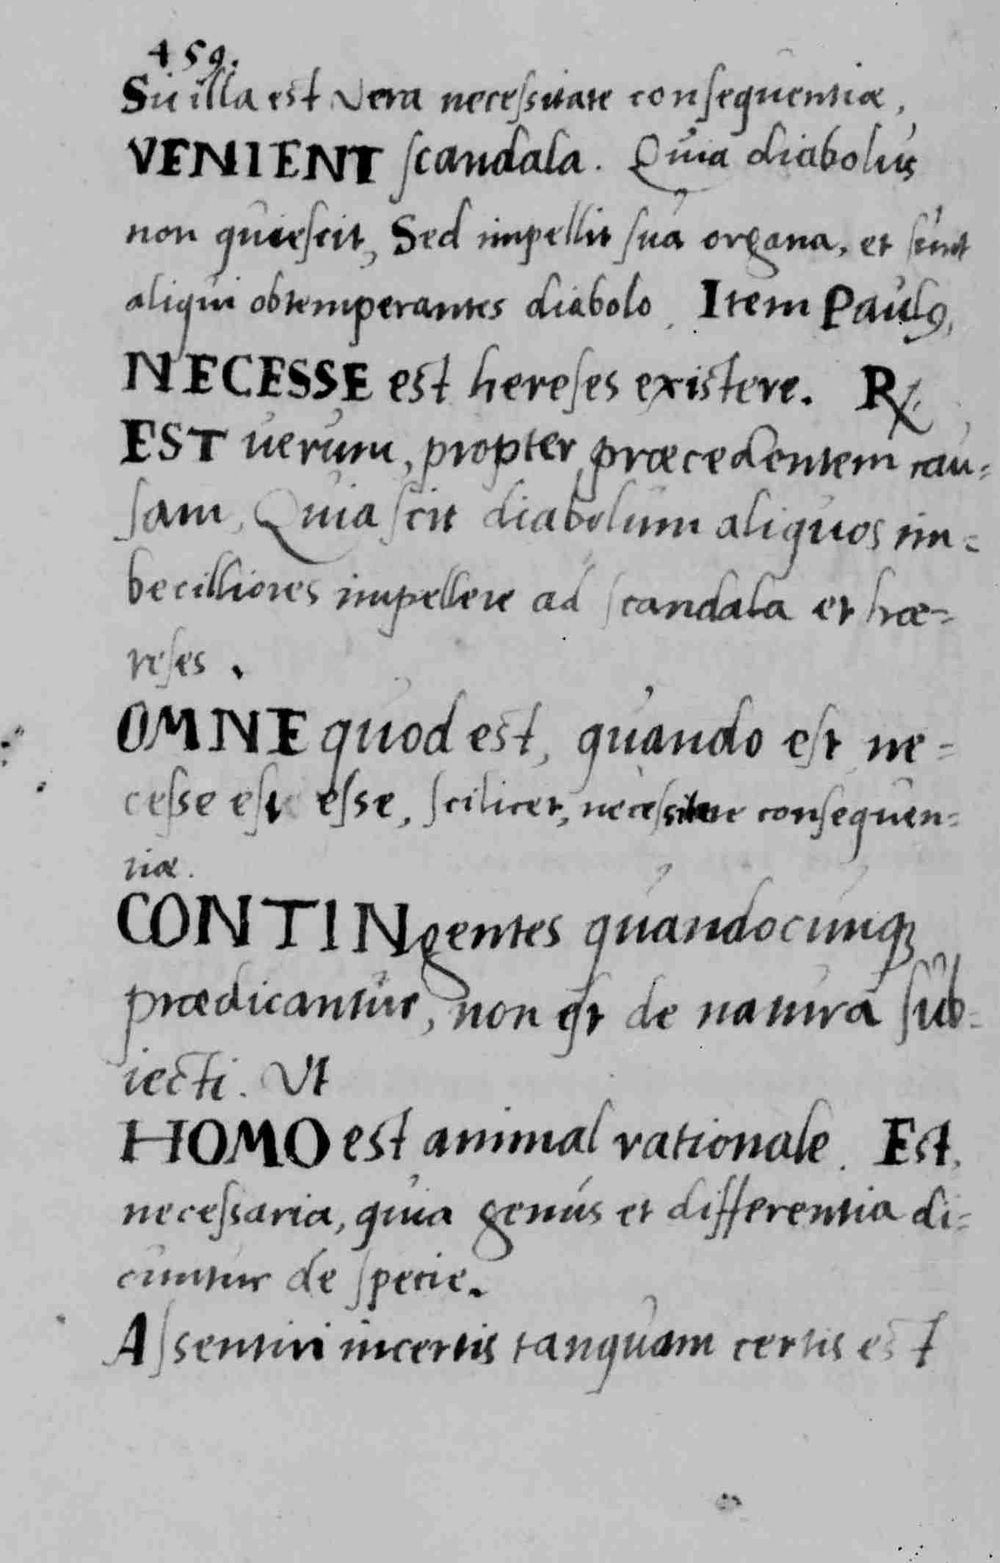 459.
Sic illa est vera necessitate consequentiæ,
VENIENT scandala. Quia diabolus
non quiescit, Sed impellit sua organa, et sunt
aliqui obtemperantes diabolo. Item Paulꝰ,
NECESSE est hereses existere. R/.
EST uerum, propter præcedentem cau=
sam, Quia scit diabolum aliquos im=
becilliores impellere ad scandala et hæ=
reses.
OMNE quod est, quando est ne=
cesse est esse, scilicet, necessitate consequen=
tiæ.
CONTINgentes quandocunqꝫ
prædicantur, non est de natura sub=
iecti. Ut
HOMO est animal rationale. Est
necessaria, quia genus et differentia di=
cuntur de specie.
Assentiri incertis tanquam certis est